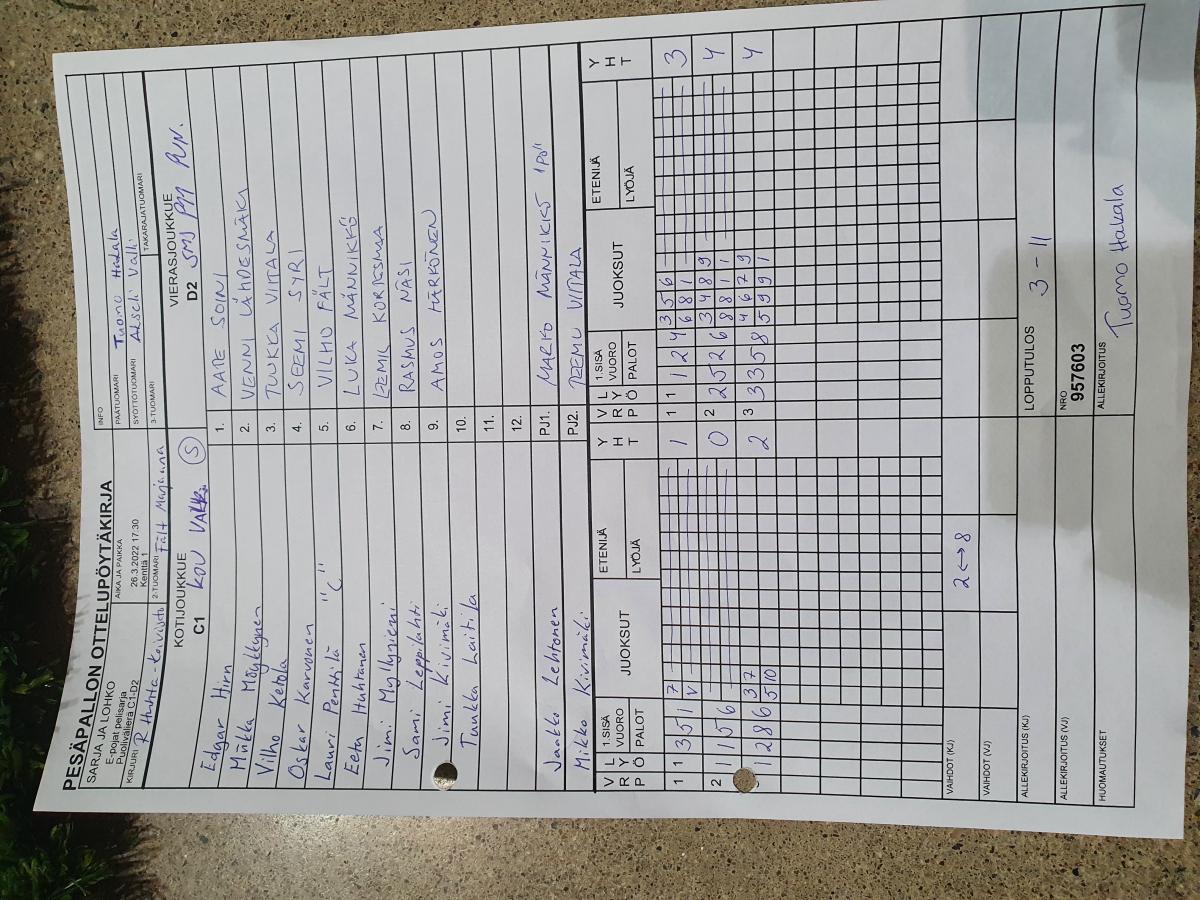 PESÄPALLON OTTELUPÖYTÄKIRJA
SARJA JA LOHKO
E-pojat pelisarja
Puolivälierä C1-D2
AIKA JA PAIKKA
26.3.2022 17:30
Kenttä 1
INFO
PÄÄTUOMARI Tuomo Hakala
SYÖTTÖTUOMARI Akseli Valli
KIRJURI R Huhta-Koivisto
2-TUOMARI Fält Marjaana
3-TUOMARI
TAKARAJATUOMARI
KOTIJOUKKUE
C1 KOU
S
VIERASJOUKKUE
D2 SMJ PUN.
Edgar Hirn
1. AATE SOINI
Miikka Möykkynen
2. VENNI LÄHDESMÄKI
Vilho Ketola
3. TUUKKA VIITALA
Oskar Karvonen
4. SEEMI SYRI
Lauri Penttilä "C"
5. VILHO FÄLT
Eetu Huhtanen
6. LUKA MÄNNIKKÖ
Jimi Myllyniemi
7. EEMIL KORKESMAA
Sami Leppilahti
8. RASMUS NÄSI
Jimi Kivimäki
9. AMOS HÄRKÖNEN
Tuukka Laitila
10.
11.
12.
Jaakko Lehtonen
PJ1. MARKO MÄNNIKKÖ "PJ"
Mikko Kivimäki
PJ2. TEEMU VIITALA
V R P
L Y Ö
1.SISÄ
VUORO
PALOT
JUOKSUT
ETENIJÄ
LYÖJÄ
Y H T
V R P
L Y Ö
1.SISÄ
VUORO
PALOT
JUOKSUT
ETENIJÄ
LYÖJÄ
Y H T
1 1 3 5 1 7 1
V
1 1 1 2 4 3 5 6 3
6 8 1
2 1 1 5 6 0
2 2 5 2 6 3 4 8 9 4
8 8 1 1
1 2 8 6 3 7 2
5 10
3 3 3 5 8 4 6 7 9 4
5 9 9 1
VAIHDOT (KJ) 2 ↔ 8
VAIHDOT (VJ)
ALLEKIRJOITUS (KJ)
LOPPUTULOS 3 - 11
ALLEKIRJOITUS (VJ)
NRO
957603
HUOMAUTUKSET
ALLEKIRJOITUS
Tuomo Hakala